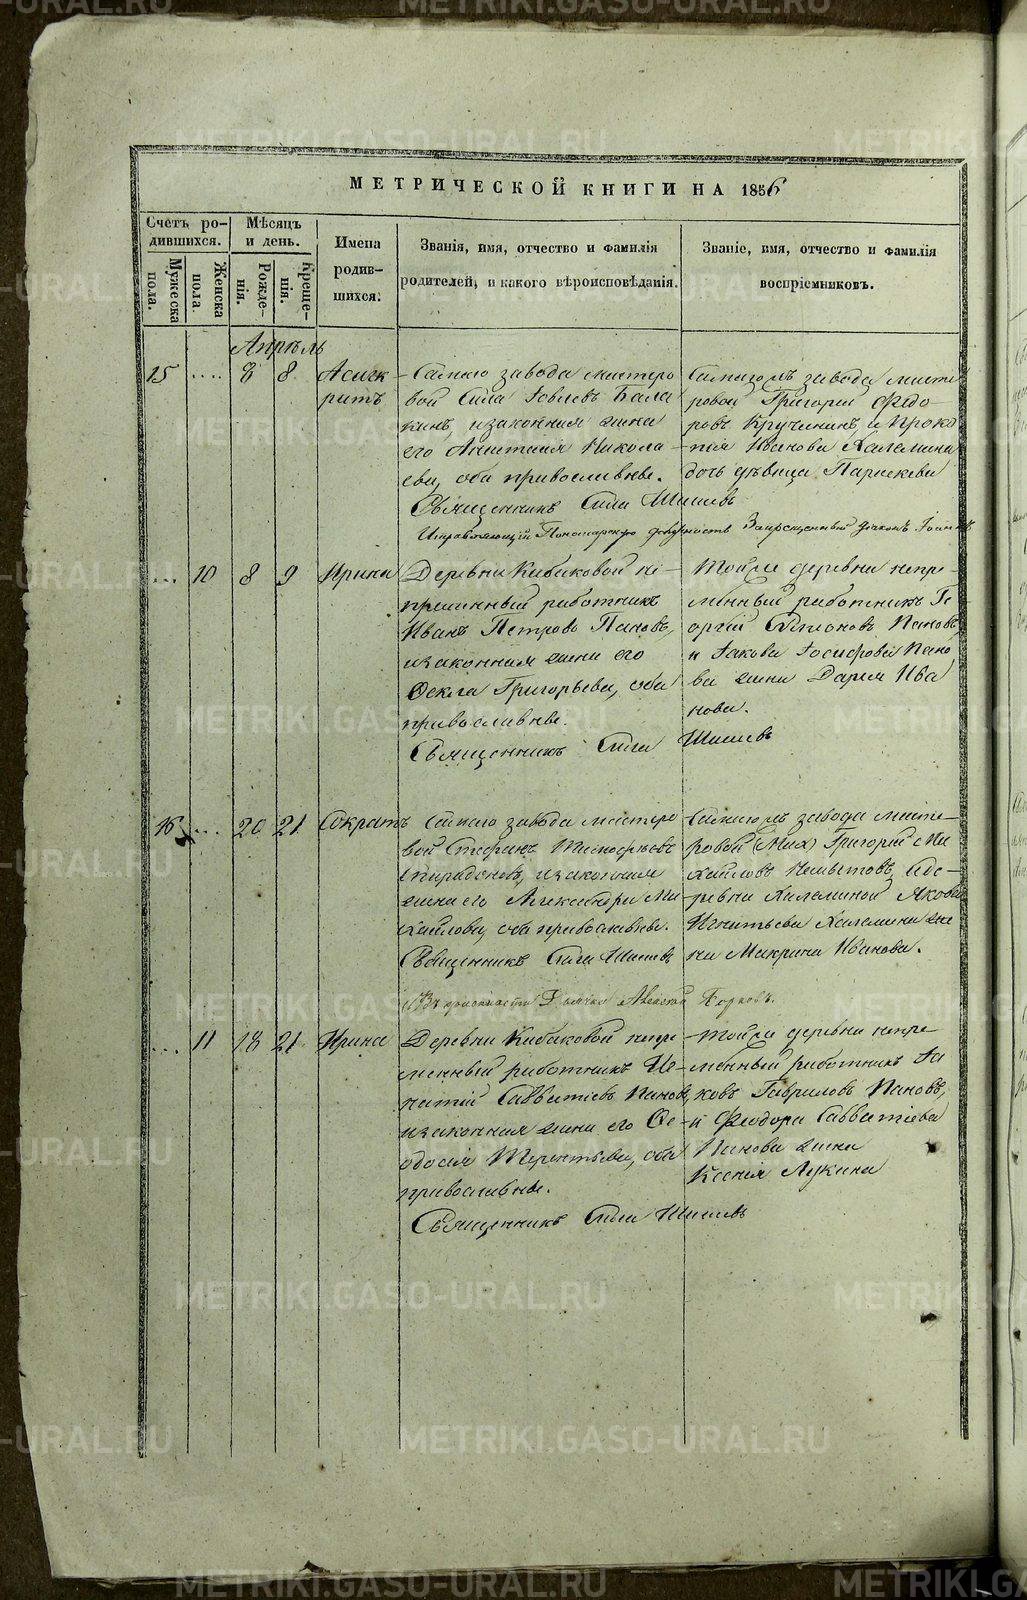 МЕТРИЧЕСКОЙ КНИГИ НА 1856
Счетъ ро-
дившихся.
Мѣсяцъ
и день.
Мужеска
пола.
Женска
пола
Рожде-
нія.
Креще-
нія.
Имена
родив-
шихся.
Званія, имя, отчество и фамилія
родителей, и какого вѣроисповѣданія.
Званіе, имя, отчество и фамилія
воспріемниковъ.
Апрѣль
15 .... 8 8 Асинк
ритъ
завода мастеро
вой Сила Іовлевъ Бала
кинъ, и законная жена
его Анастасія Никола
ева, оба православные.
Священникъ Сила Шишевъ
завода масте
ровой Григорій Федо
ровъ Кручининъ, и Проко
пія Иванова Халемина
дочь дѣвица Параскева
Исправляющій Пономарскую должность Запрещенный Дьяконъ Іоаннъ
... 10 8 9 Ирина
Деревни Кабаковой не-
премѣнный работникъ
Иванъ Петровъ Пановъ,
и законная жена его
Ѳекла Григорьева, оба
православные.
Священникъ Сила Шишевъ
Той же деревни непре-
мѣнный работникъ Ге
оргій Симионовъ Пановъ,
и Іакова Іосифова Пано
ва жена Дарья Ива
нова.
16 ... 20 21 Сократъ
завода мастеро
вой Стефанъ Тимофеевъ
Спиридоновъ, и законная
жена его Александра Ми
хайлова, оба православные.
Священникъ Сила Шишевъ
завода масте-
ровой Григорій Ми
хайловъ и де-
ревни Халеминой Якова
Игнатьева Халемина же
на Макрина Иванова.
Дьячка Алексѣй
... 11 18 21 Ирина
Деревни Кабаковой непре
мѣнный работникъ Иг
натій Савватіевъ Пановъ,
и законная жена его Ѳе
одосія Терентьева, оба
православные.
Священникъ Сила Шишевъ
Той же деревни непре-
мѣнный работникъ Іа
ковъ Гавриловъ Пановъ,
и Ѳеодора Савватіева
Панова жена
Ксенія Лукина
METRIKI.GASO-URAL.RU